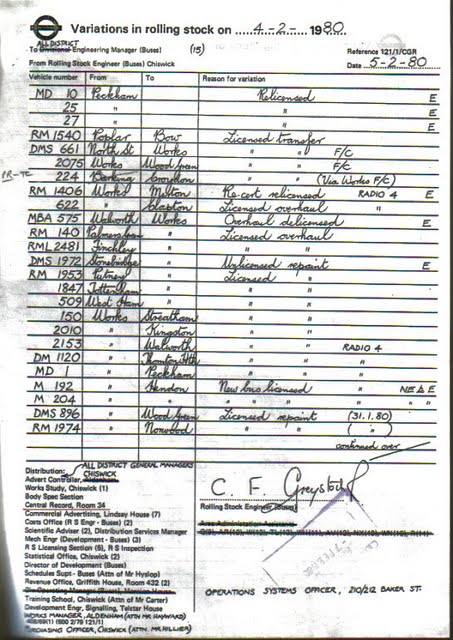 Variations in rolling stock on 4-2- 1980
ALL DISTRICT
To Divisional Engineering Manager (Buses) (15) Reference 121/1/CGR
From Rolling Stock Engineer (Buses) Chiswick Date 5-2-80
Vehicle number From To Reason for variation
MD 10 Peckham Relicensed E
25 " " E
27 " " E
RM 1540 Poplar Bow Licensed transfer
DMS 661 North St Works " " F/C
2075 Works Wood Green " " F/C
PR-TC 224 Barking Croydon " " (Via Works F/C)
RM 1406 Works Merton Re-cert relicensed RADIO 4 E
622 " Clapton Licensed overhaul "
MBA 575 Walworth Works Overhaul delicensed E
RM 140 Palmers Green " Licensed overhaul
RML 2481 Finchley " " "
DMS 1972 Stonebridge " Unlicensed repaint E
RM 1953 Putney " Licensed "
1847 Tottenham " " "
509 West Ham " " "
150 Works Streatham " "
2010 " Kingston " "
2153 " Walworth " " RADIO 4
DM 1120 " Thornton Hth " "
MD 1 " Peckham " "
M 192 " Hendon New bus licensed NE & E
M 204 " " " " " " "
DMS 896 Wood Green Licensed repaint (31.1.80)
RM 1974 Norwood " " ( " )
continued over
Distribution: ALL DISTRICT GENERAL MANAGERS
CHISWICK
Advert Controller, Aldenham
Works Study, Chiswick (1)
Body Spec Section
Central Record, Room 34
Commercial Advertising, Lindsay House (7)
Costs Office (R S Engr - Buses) (2)
Scientific Adviser (2), Distribution Services Manager
Mech Engr (Development - Buses) (3)
R S Licensing Section (5), R S Inspection
Statistical Office, Chiswick (2)
Director of Development (Buses)
Schedules Supt - Buses (Attn of Mr Hyslop)
Revenue Office, Griffith House, Room 432 (2)
Div Operating Manager (Buses), Mansion House
Training School, Chiswick (Attn of Mr Carter)
Development Engr, Signalling, Telstar House
WORKS MANAGER, ALDENHAM (ATTN MR HAYWARD)
PURCHASING OFFICER, CHISWICK (ATTN. MR HILLIER)
C. F. Greystock
Rolling Stock Engineer (Buses)
Area Administration Assistants
OPERATIONS SYSTEMS OFFICER, 210/212 BAKER ST.